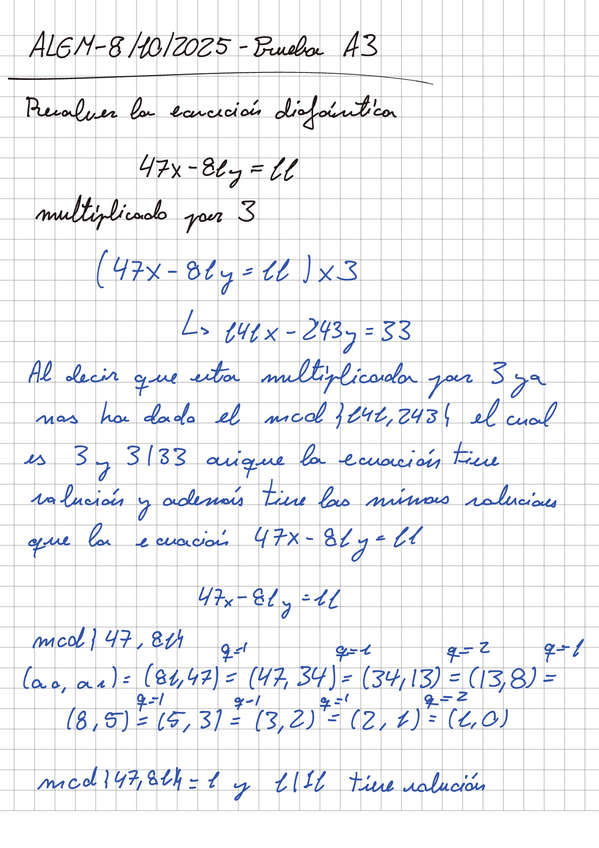 ALEM-8/10/2025-Prueba A3
Resolver la ecuación diofántica
47x-81y=11
multiplicado por 3
(47x-81y=11)x3
↳ 141x-243y=33
Al decir que esta multiplicada por 3 ya
nos ha dado el mcd {141,243} el cual
es 3 y 3|33 asique la ecuación tiene
solución y además tiene las mismas soluciones
que la ecuación 47x-81y=11
47x-81y=11
mcd{47,81}
q=1 q=1 q=2 q=1
(a0, a1)=(81,47)=(47,34)=(34,13)=(13,8)=
q=1 q=1 q=1 q=2
(8,5)=(5,3)=(3,2)=(2,1)=(1,0)
mcd{47,81}=1 y 1|11 tiene solución